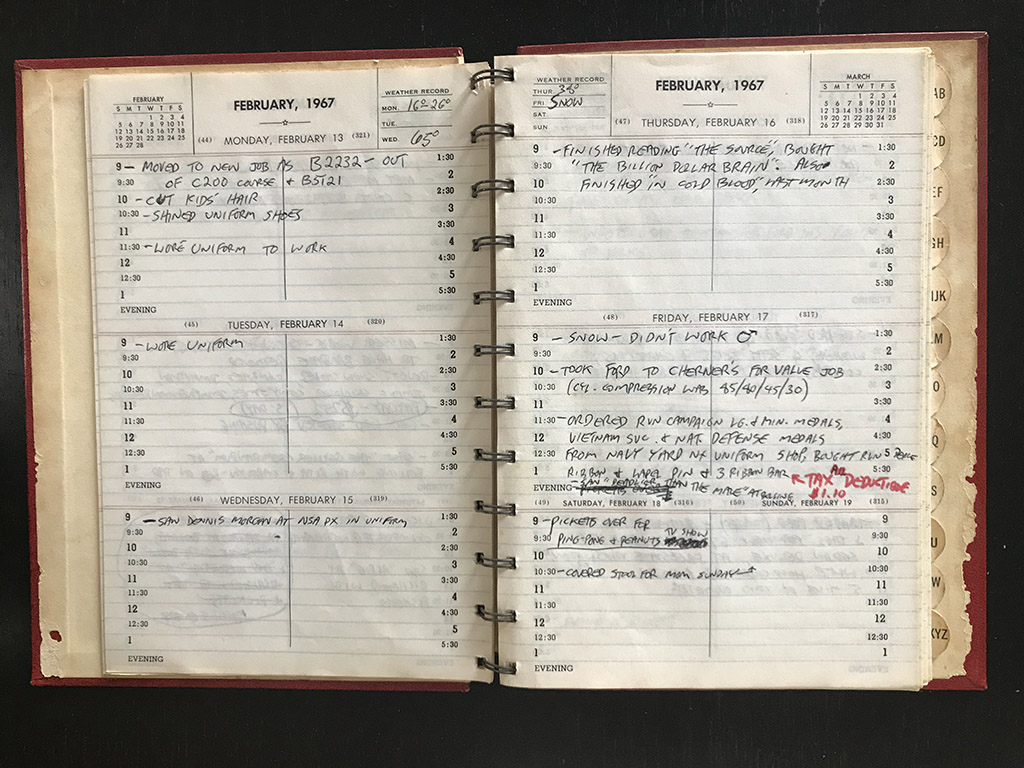 FEBRUARY
S M T W T F S
1 2 3 4
5 6 7 8 9 10 11
12 13 14 15 16 17 18
19 20 21 22 23 24 25
26 27 28
FEBRUARY, 1967
WEATHER RECORD
MON. 16°-26°
TUE.
WED. 65°
(44) MONDAY, FEBRUARY 13 (321)
9 - MOVED TO NEW JOB AS B2232 - OUT 1:30
9:30 OF C200 COURSE & B5T21 2
10 - CUT KIDS' HAIR 2:30
10:30 - SHINED UNIFORM SHOES 3
11 3:30
11:30 - WORE UNIFORM TO WORK 4
12 4:30
12:30 5
1 5:30
EVENING
(45) TUESDAY, FEBRUARY 14 (320)
9 - WORE UNIFORM 1:30
9:30 2
10 2:30
10:30 3
11 3:30
11:30 4
12 4:30
12:30 5
1 5:30
EVENING
(46) WEDNESDAY, FEBRUARY 15 (319)
9 - SAW DENNIS MORGAN AT NSA PX IN UNIFORM 1:30
9:30 2
10 2:30
10:30 3
11 3:30
11:30 4
12 4:30
12:30 5
1 5:30
EVENING
WEATHER RECORD
THUR. 38°
FRI. SNOW
SAT.
SUN.
FEBRUARY, 1967
MARCH
S M T W T F S
1 2 3 4
5 6 7 8 9 10 11
12 13 14 15 16 17 18
19 20 21 22 23 24 25
26 27 28 29 30 31
(47) THURSDAY, FEBRUARY 16 (318)
9 - FINISHED READING "THE SOURCE", BOUGHT 1:30
9:30 "THE BILLION DOLLAR BRAIN". ALSO 2
10 FINISHED "IN COLD BLOOD", LAST MONTH 2:30
10:30 3
11 3:30
11:30 4
12 4:30
12:30 5
1 5:30
EVENING
(48) FRIDAY, FEBRUARY 17 (317)
9 - SNOW - DIDN'T WORK ♂ 1:30
9:30 2
10 - TOOK FORD TO CHERNER'S FOR VALVE JOB 2:30
10:30 (CYL. COMPRESSION WAS 85/80/45/30) 3
11 3:30
11:30 - ORDERED RVN CAMPAIGN LG. & MIN. MEDALS, 4
12 VIETNAM SVC. & NAT DEFENSE MEDALS 4:30
FROM NAVY YARD NX UNIFORM SHOP, BOUGHT RVN 5
1 RIBBON & LAPEL PIN & 3 RIBBON BAR 5:30
TAX DEDUCTIBLE
$1.10
EVENING - SAW "DEADLIER THAN THE MALE" AT
(49) SATURDAY, FEBRUARY 18 (316) (50) SUNDAY, FEBRUARY 19 (315)
9 - PICKETTS OVER FOR 9
9:30 PING-PONG & PEANUTS TV SHOW 9:30
10 10
10:30 - COVERED STOOL FOR MOM SUNDAY 10:30
11 11
11:30 11:30
12 12
12:30 12:30
1 1
EVENING EVENING
AB
CD
EF
GH
IJK
LM
O
Q
S
U
W
XYZ